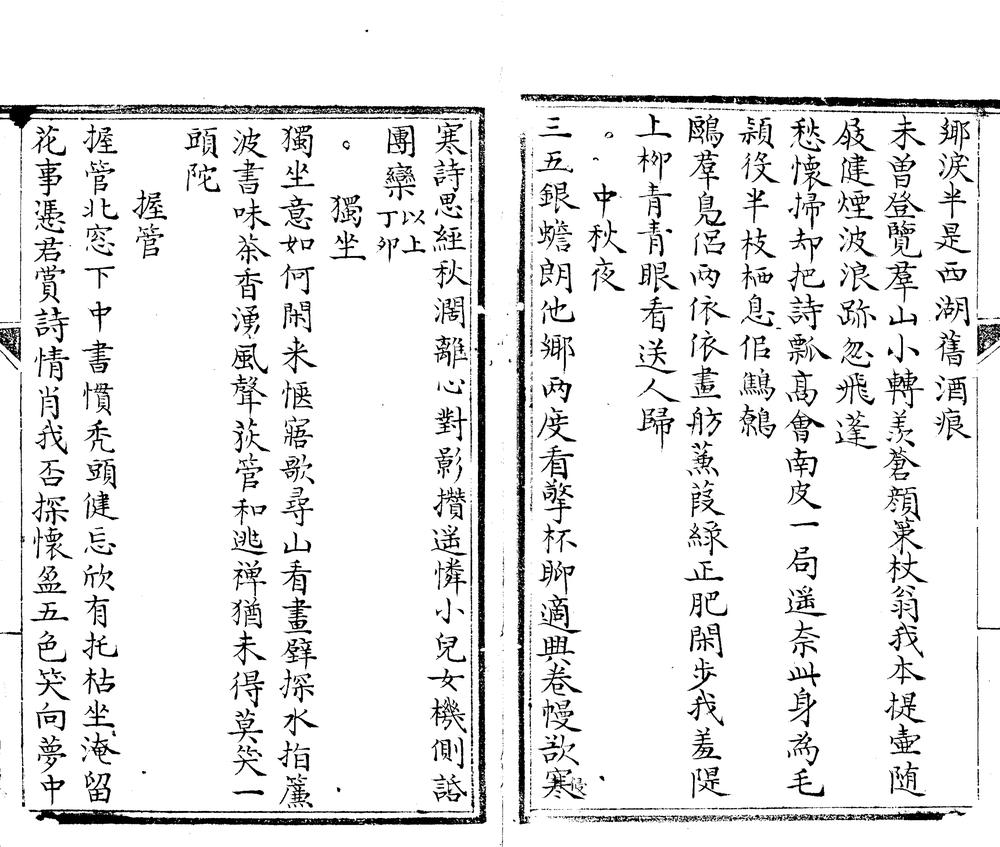 鄉淚半是西湖舊酒痕
未曾登覽羣山小轉羡蒼顏策杖翁我本提壷随
屐健煙波浪跡忽飛蓬
愁懷掃却把詩瓢高會南皮一局遥奈此身為毛
穎役半枝栖息佀鷦鷯
鷗羣鳧侣兩依依畫舫蒹葭綠正肥閑步我羞隄
上柳青青眼看送人歸
中秋夜
三五銀蟾朗他鄉兩度看擎杯聊適興卷幔欲侵寒
寒詩思經秋濶離心對影攢遥憐小兒女機側話
團欒以上丁卯
獨坐
獨坐意如何閑来愜寤歌尋山看畫壁探水指簾
波書味茶香湧風聲荻管和逃禅猶未得莫笑一
頭陀
握管
握管北窓下中書慣禿頭健忘欣有托枯坐淹留
花事憑君賞詩情肖我否探懷盈五色笑向夢中